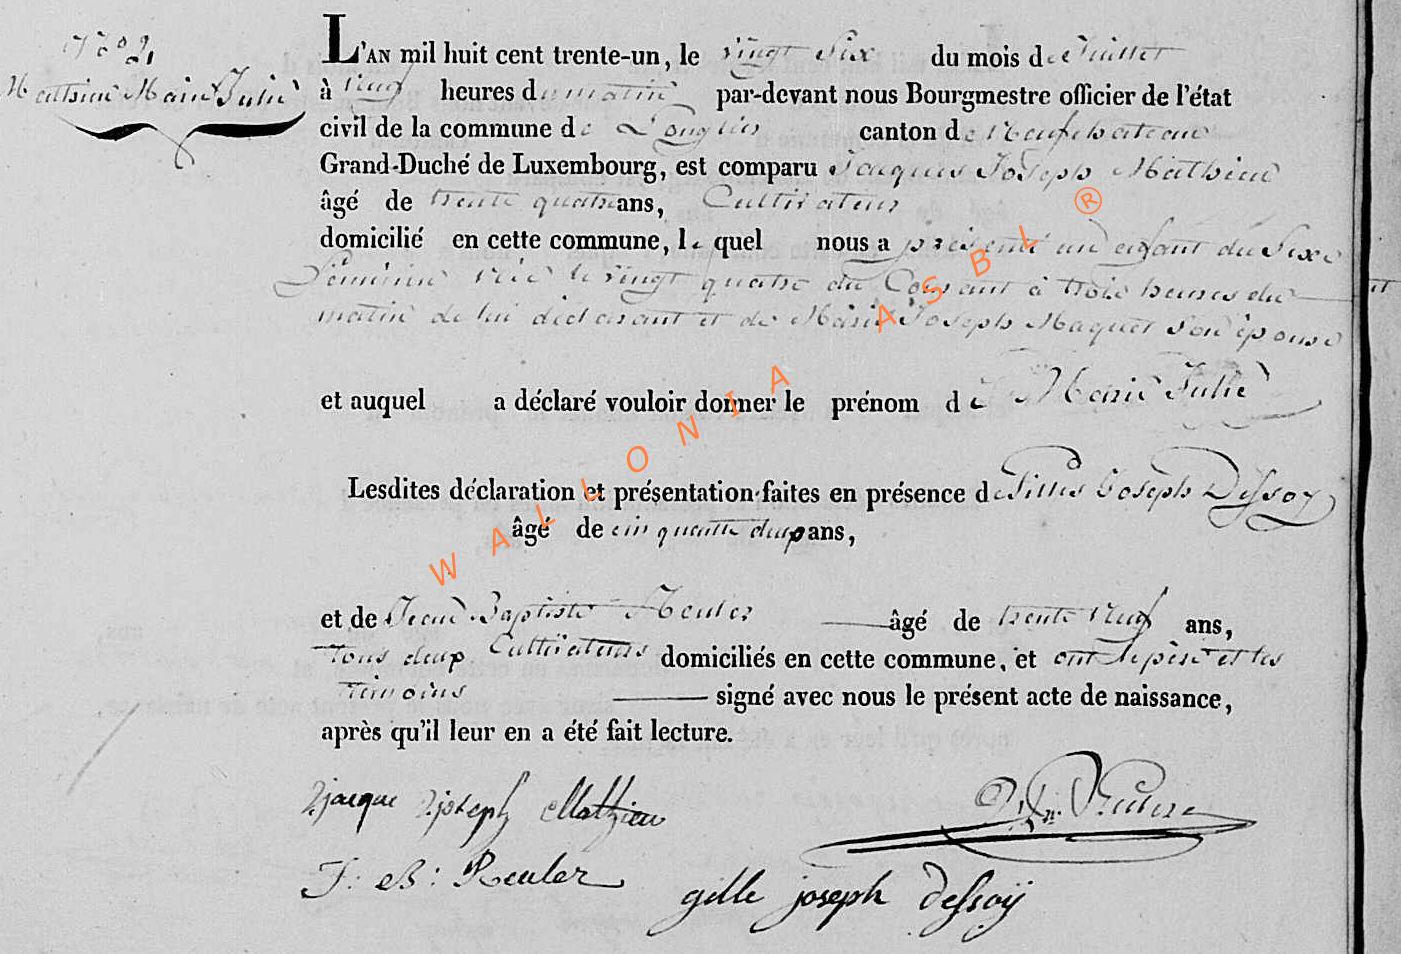 Mathieu Marie Julie
L'AN mil huit cent trente-un, le vingt six du mois de Juillet
à neuf heures du matin par-devant nous Bourgmestre officier de l'état
civil de la commune de Longlier canton de Neufchateau
Grand-Duché de Luxembourg, est comparu Jacques Joseph Mathieu
âgé de trente quatre ans, Cultivateur
domicilié en cette commune, le quel nous a présenté un enfant du Sexe
Féminin née le vingt quatre du Courant à trois heures du
matin de lui déclarant et de Marie Joseph Maquet Son épouse
et auquel a déclaré vouloir donner le prénom de Marie Julie
Lesdites déclaration et présentation faites en présence de Gilles Joseph Dessoy
âgé de cinquante deux ans,
et de Jean Baptiste Reuler âgé de trente neuf ans,
Tous deux Cultivateurs domiciliés en cette commune, et ont le père et les
témoins signé avec nous le présent acte de naissance,
après qu'il leur en a été fait lecture.
Jjacque Jjoseph Mathieu
J: B: Reuler
gille joseph dessoÿ
WALLONIA ASBL ®